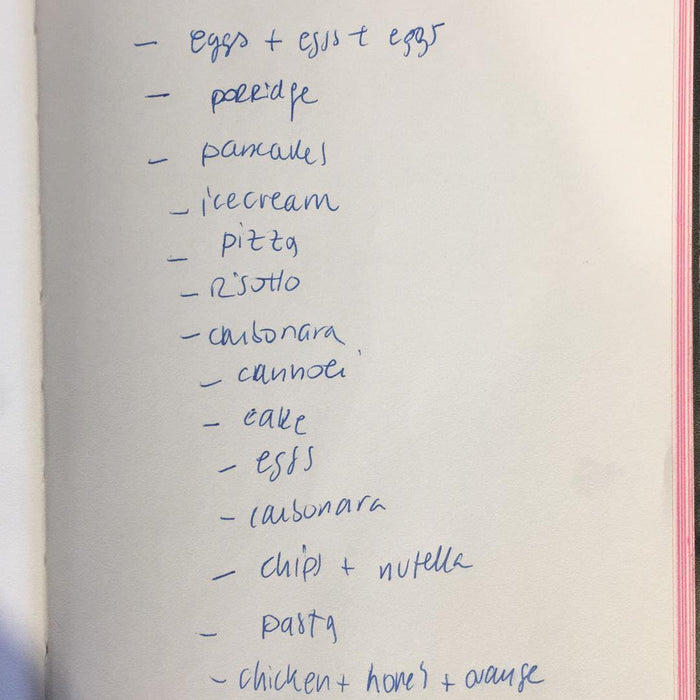 - eggs + eggs + eggs
- porridge
- pancakes
- icecream
- pizza
- risotto
- carbonara
- cannoli
- cake
- eggs
- carbonara
- chips + nutella
- pasta
- chicken + honey + orange